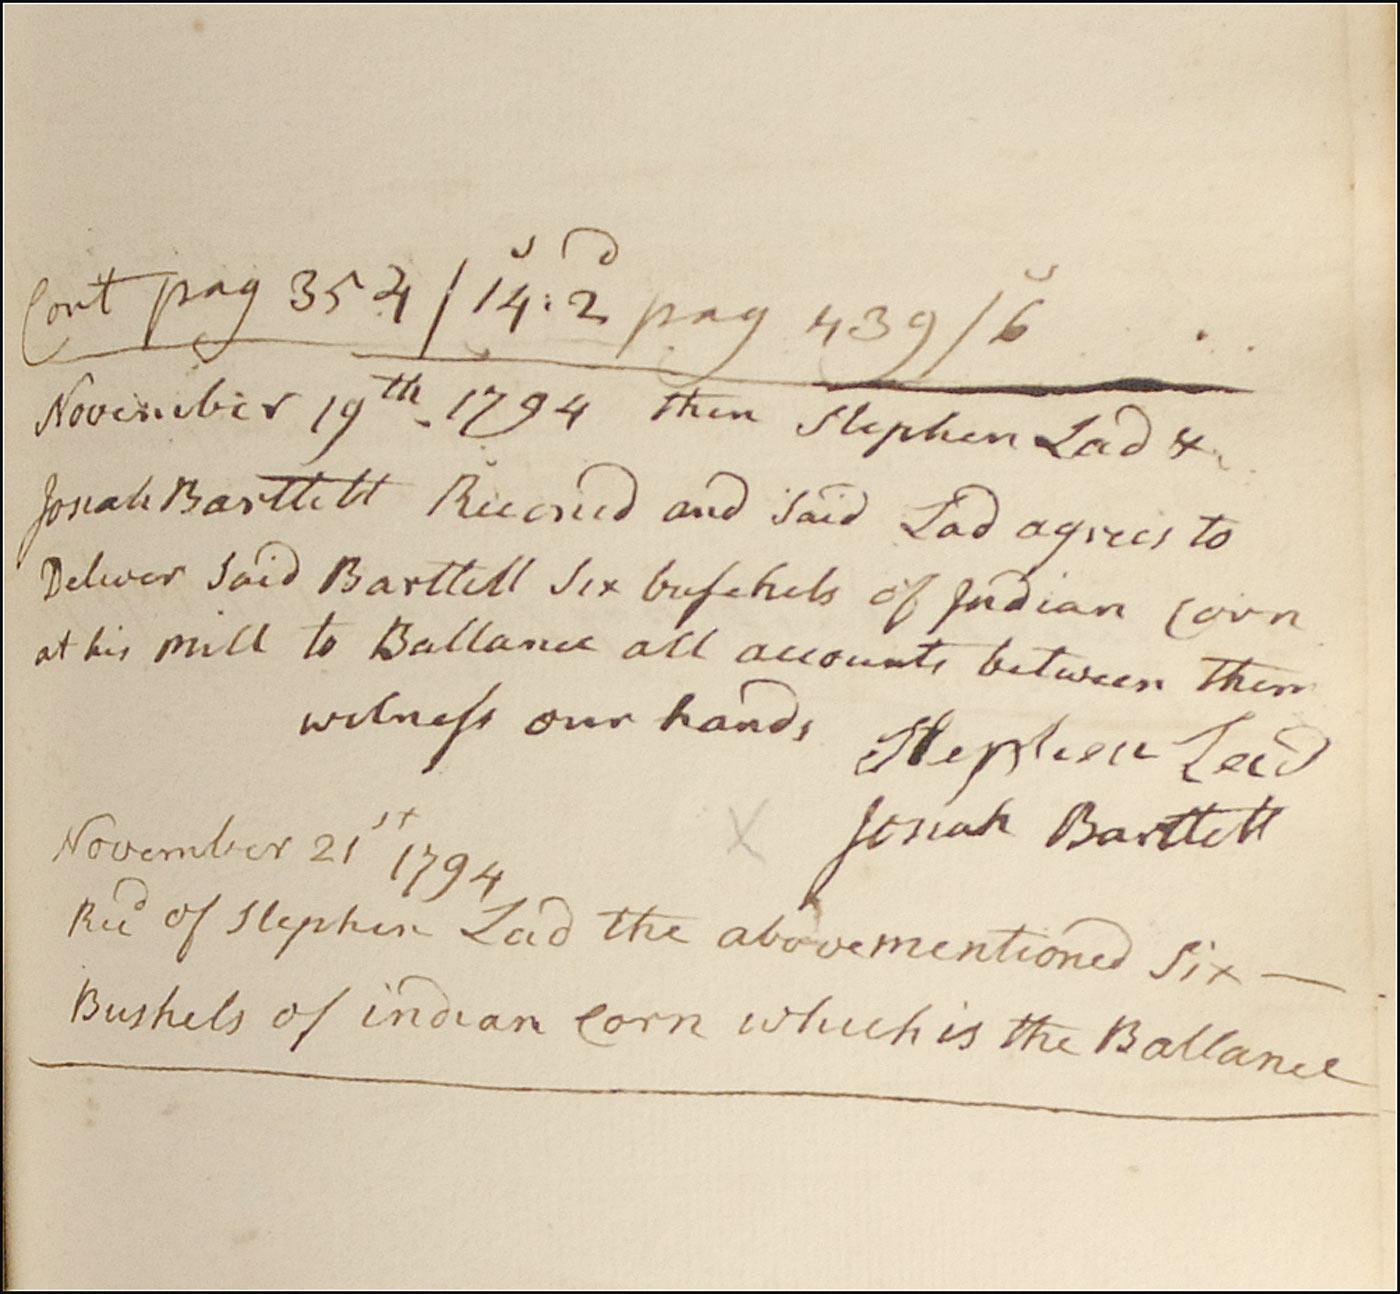 Cont pag 354 / 14s: 2d pag 439 / 6s
November 19th 1794 then Stephen Lad &
Josiah Bartlett Reconed and Said Lad agrees to
Deliver Said Bartlett Six buſchels of Indian Corn
at his mill to Ballance all accounts between them
witneſs our hands Stephen Lad
Josiah Bartlett
November 21st 1794
Recd of Stephen Lad the abovementioned Six —
Bushels of indian Corn which is the Ballance